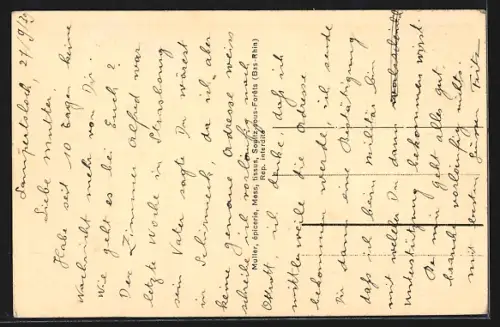 Lampertsloch, 21/9/39
Liebe Mutter.
Habe seit 10 Tagen keine
Nachricht mehr von Dir.
Wie geht es bei Euch?
Der Zimmer Alfred war
letzte Woche in Strasbourg
sein Vater sagte Du wärest
in Schirmeck, da ich aber
keine genaue Adresse weis
schreibe ich vorläufig nach
Ottrott ich denke, dass ich
mittlerweile die Adresse
bekommen werde, ich sende
Dir dann eine Bestätigung
dass ich beim Militär bin
mit welcher Du dann
Unterstützung bekommen wirst.
Bei mir geht alles gut.
brauche vorläufig nichts.
mit besten Grüssen Fritz
Muller, épicerie, Mess, tissus, Soultz-sous-Forêts (Bas-Rhin)
Rep. interdite